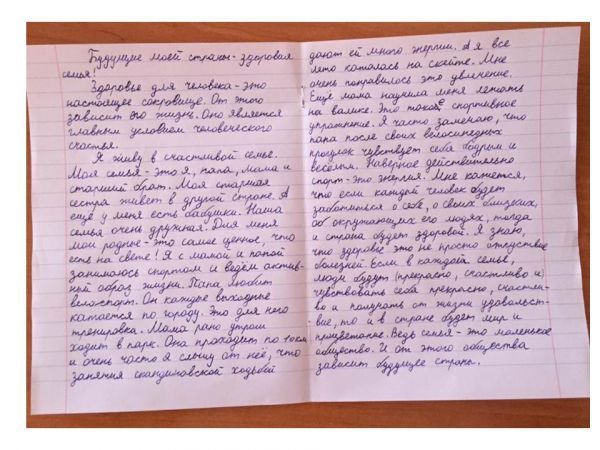 Будущие моей страны - здоровая
семья!
Здоровье для человека - это
настоящее сокровище. От этого
зависит его жизнь. Оно является
главным условием человеческого
счастья.
Я живу в счастливой семье.
Моя семья - это я, папа, мама и
старший брат. Моя старшая
сестра живёт в другой стране. А
ещё у меня есть бабушки. Наша
семья очень дружная. Для меня
мои родные - это самое ценное, что
есть на свете! Я с мамой и папой
занимаюсь спортом и ведём актив-
ный образ жизни. Папа любит
велоспорт. Он каждые выходные
катается по городу. Это для него
тренировка. Мама рано утром
ходит в парк. Она проходит по 10 км
и очень часто я слышу от неё, что
занятия скандиновской ходьбой
дают ей много энергии. А я все
лето каталась на скейте. Мне
очень понравилось это увлечение.
Ещё мама научила меня лежать
на валике. Это такое спортивное
упражнение. Я часто замечаю, что
папа после своих велосипедных
прогулок чувствует себя бодрым и
весёлым. Наверное действительно
спорт - это энергия. Мне кажется,
что если каждый человек будет
заботиться о себе, о своих близких,
об окружающих его людях, тогда
и страна будет здоровой. Я знаю,
что здоровье это не просто отсутствие
болезней. Если в каждой семье,
люди будут (прекрасно, счастливо и)
чувствовать себя прекрасно, счастли-
во и получать от жизни удовольст-
вие, то и в стране будет мир и
процветание. Ведь семья - это маленькое
общество. И от этого общества
зависит будущее страны.